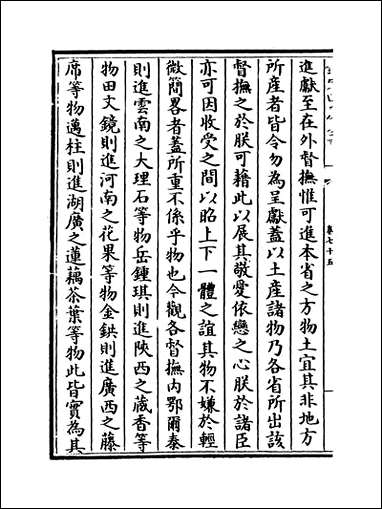 進獻至在外督撫惟可進本省之方物土宜其非地方
所產者皆令勿為呈獻蓋以土產諸物乃各省所出該
督撫之於朕可藉此以展其敬愛依戀之心朕於諸臣
亦可因收受之間以昭上下一體之誼其物不嫌於輕
微簡畧者蓋所重不係乎物也今觀各督撫內鄂爾泰
則進雲南之大理石等物岳鍾琪則進陝西之藏香等
物田文鏡則進河南之花果等物金鉷則進廣西之藤
席等物邁柱則進湖廣之蓮藕茶葉等物此皆實為其
卷七十五